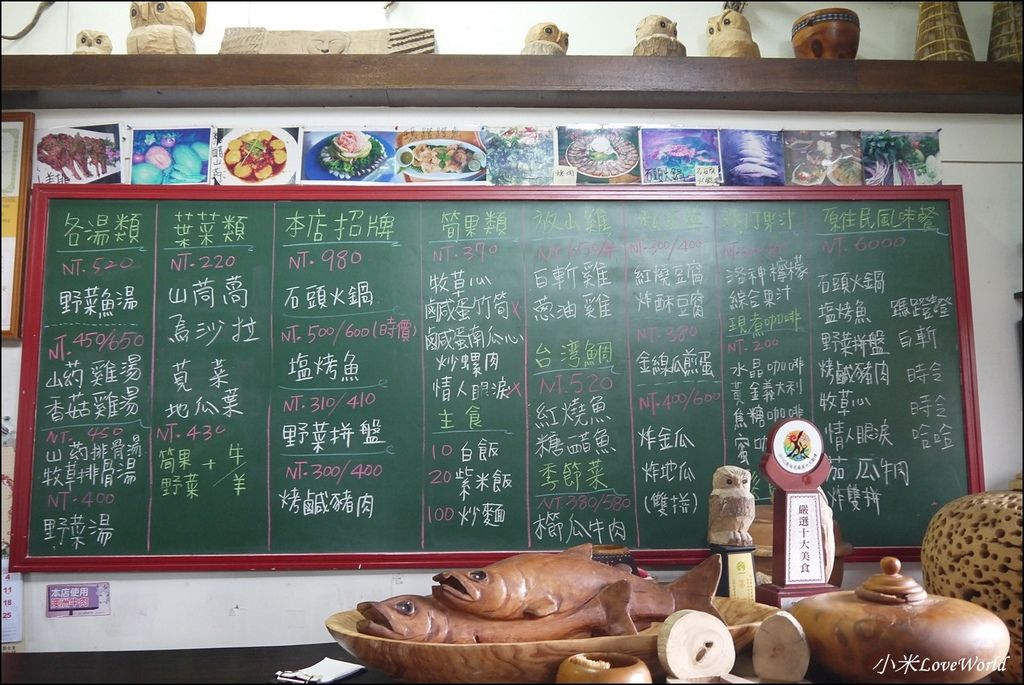 各湯類
NT.520
野菜魚湯
NT.450/650
山药雞湯
香菇雞湯
NT.450
山药排骨湯
牧草排骨湯
NT.400
野菜湯
葉菜類
NT.220
山茼萵
烏沙拉
莧菜
地瓜葉
NT.430
筒果+牛
野菜/羊
本店招牌
NT.980
石頭火鍋
NT.500/600(時價)
塩烤魚
NT.310/410
野菜拼盤
NT.300/400
烤鹹豬肉
筒果類
NT.370
牧草心
鹹蛋竹筒x
鹹蛋南瓜心
炒螺肉
情人眼淚x
主食
10白飯
20紫米飯
100炒麵
放山雞
百斬雞
蔥油雞
台湾鯛
NT.520
紅燒魚
糖醋魚
季節菜
NT.380/580
櫛瓜牛肉
300/400
紅燒豆腐
炸酥豆腐
NT.380
金線瓜煎蛋
NT.400/600
炸金瓜
炸地瓜
(雙拼)
現打果汁
洛神檸檬
綜合果汁
現煮咖啡
NT.200
水晶咖啡
黃金義大利
焦糖咖啡
原住民風味餐
NT.6000
石頭火鍋
塩烤魚
野菜拼盤 百斬
烤鹹豬肉 時令
牧草心 時令
情人眼淚 哈哈
瓜牛肉
炸雙拼
嚴選十大美食
本店使用
澳洲牛肉
4
11
18
25
小米LoveWorld